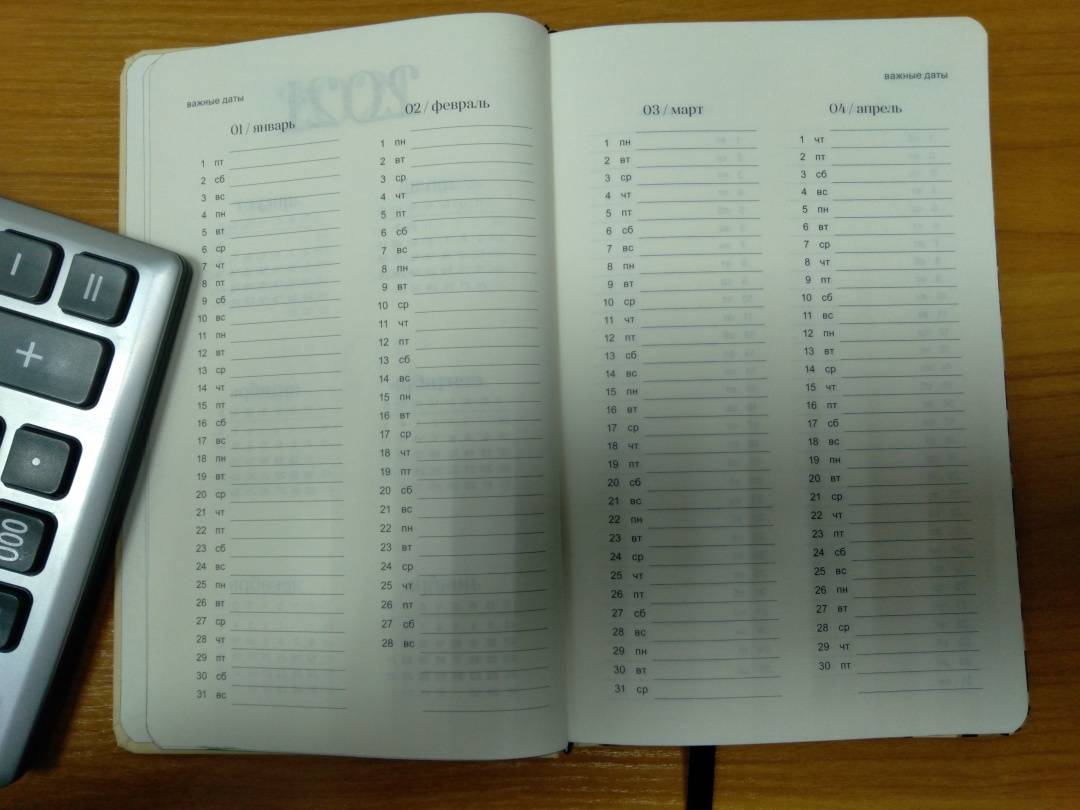 важные даты
01 / январь
1 пт
2 сб
3 вс
4 пн
5 вт
6 ср
7 чт
8 пт
9 сб
10 вс
11 пн
12 вт
13 ср
14 чт
15 пт
16 сб
17 вс
18 пн
19 вт
20 ср
21 чт
22 пт
23 сб
24 вс
25 пн
26 вт
27 ср
28 чт
29 пт
30 сб
31 вс
02 / февраль
1 пн
2 вт
3 ср
4 чт
5 пт
6 сб
7 вс
8 пн
9 вт
10 ср
11 чт
12 пт
13 сб
14 вс
15 пн
16 вт
17 ср
18 чт
19 пт
20 сб
21 вс
22 пн
23 вт
24 ср
25 чт
26 пт
27 сб
28 вс
важные даты
03 / март
1 пн
2 вт
3 ср
4 чт
5 пт
6 сб
7 вс
8 пн
9 вт
10 ср
11 чт
12 пт
13 сб
14 вс
15 пн
16 вт
17 ср
18 чт
19 пт
20 сб
21 вс
22 пн
23 вт
24 ср
25 чт
26 пт
27 сб
28 вс
29 пн
30 вт
31 ср
04 / апрель
1 чт
2 пт
3 сб
4 вс
5 пн
6 вт
7 ср
8 чт
9 пт
10 сб
11 вс
12 пн
13 вт
14 ср
15 чт
16 пт
17 сб
18 вс
19 пн
20 вт
21 ср
22 чт
23 пт
24 сб
25 вс
26 пн
27 вт
28 ср
29 чт
30 пт
I
II
+
.
000
2021